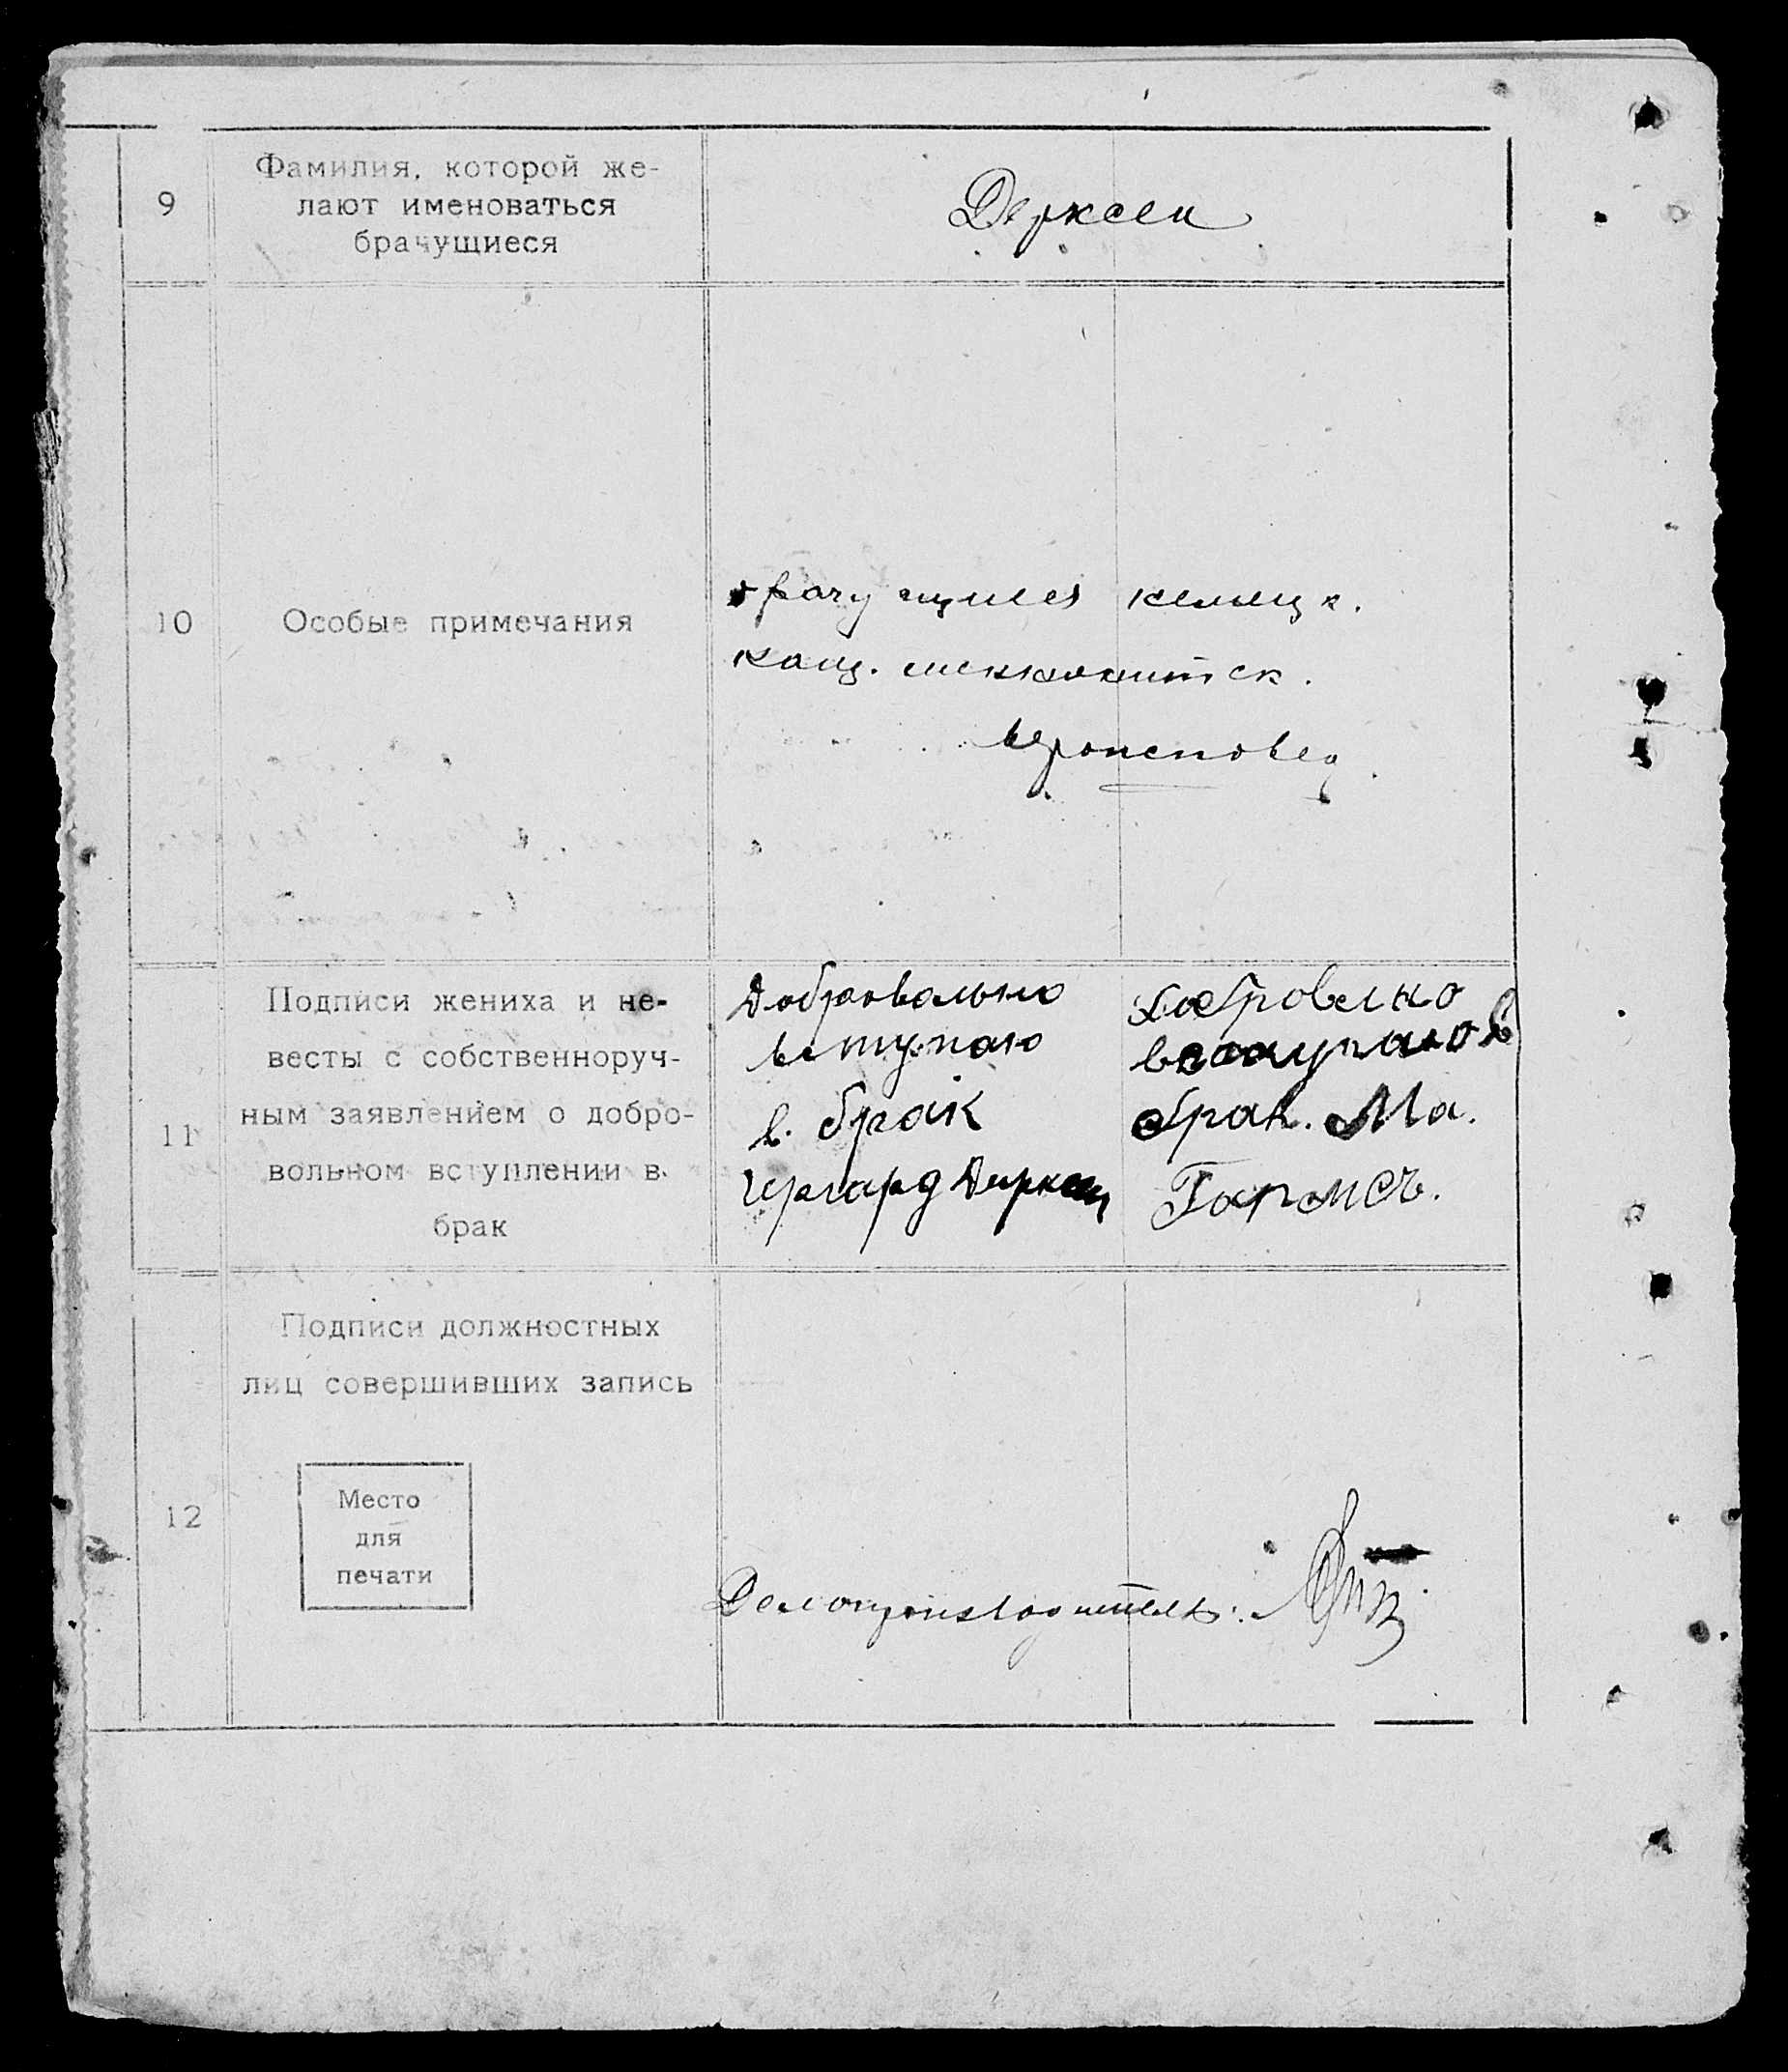 9
Фамилия, которой же-
лают именоваться
брачущиеся
Дерксен
10
Особые примечания
брачущиеся немецк.
нац. меннонитск.
вероисповед.
11
Подписи жениха и не-
весты с собственноруч-
ным заявлением о добро-
вольном вступлении в
брак
Добровольно
вступаю
в брак
Гергард Дирксен
Добровелно
вступаю в
брак. Ма.
Гармсъ.
12
Подписи должностных
лиц совершивших запись
Место
для
печати
Делопроизводитель: